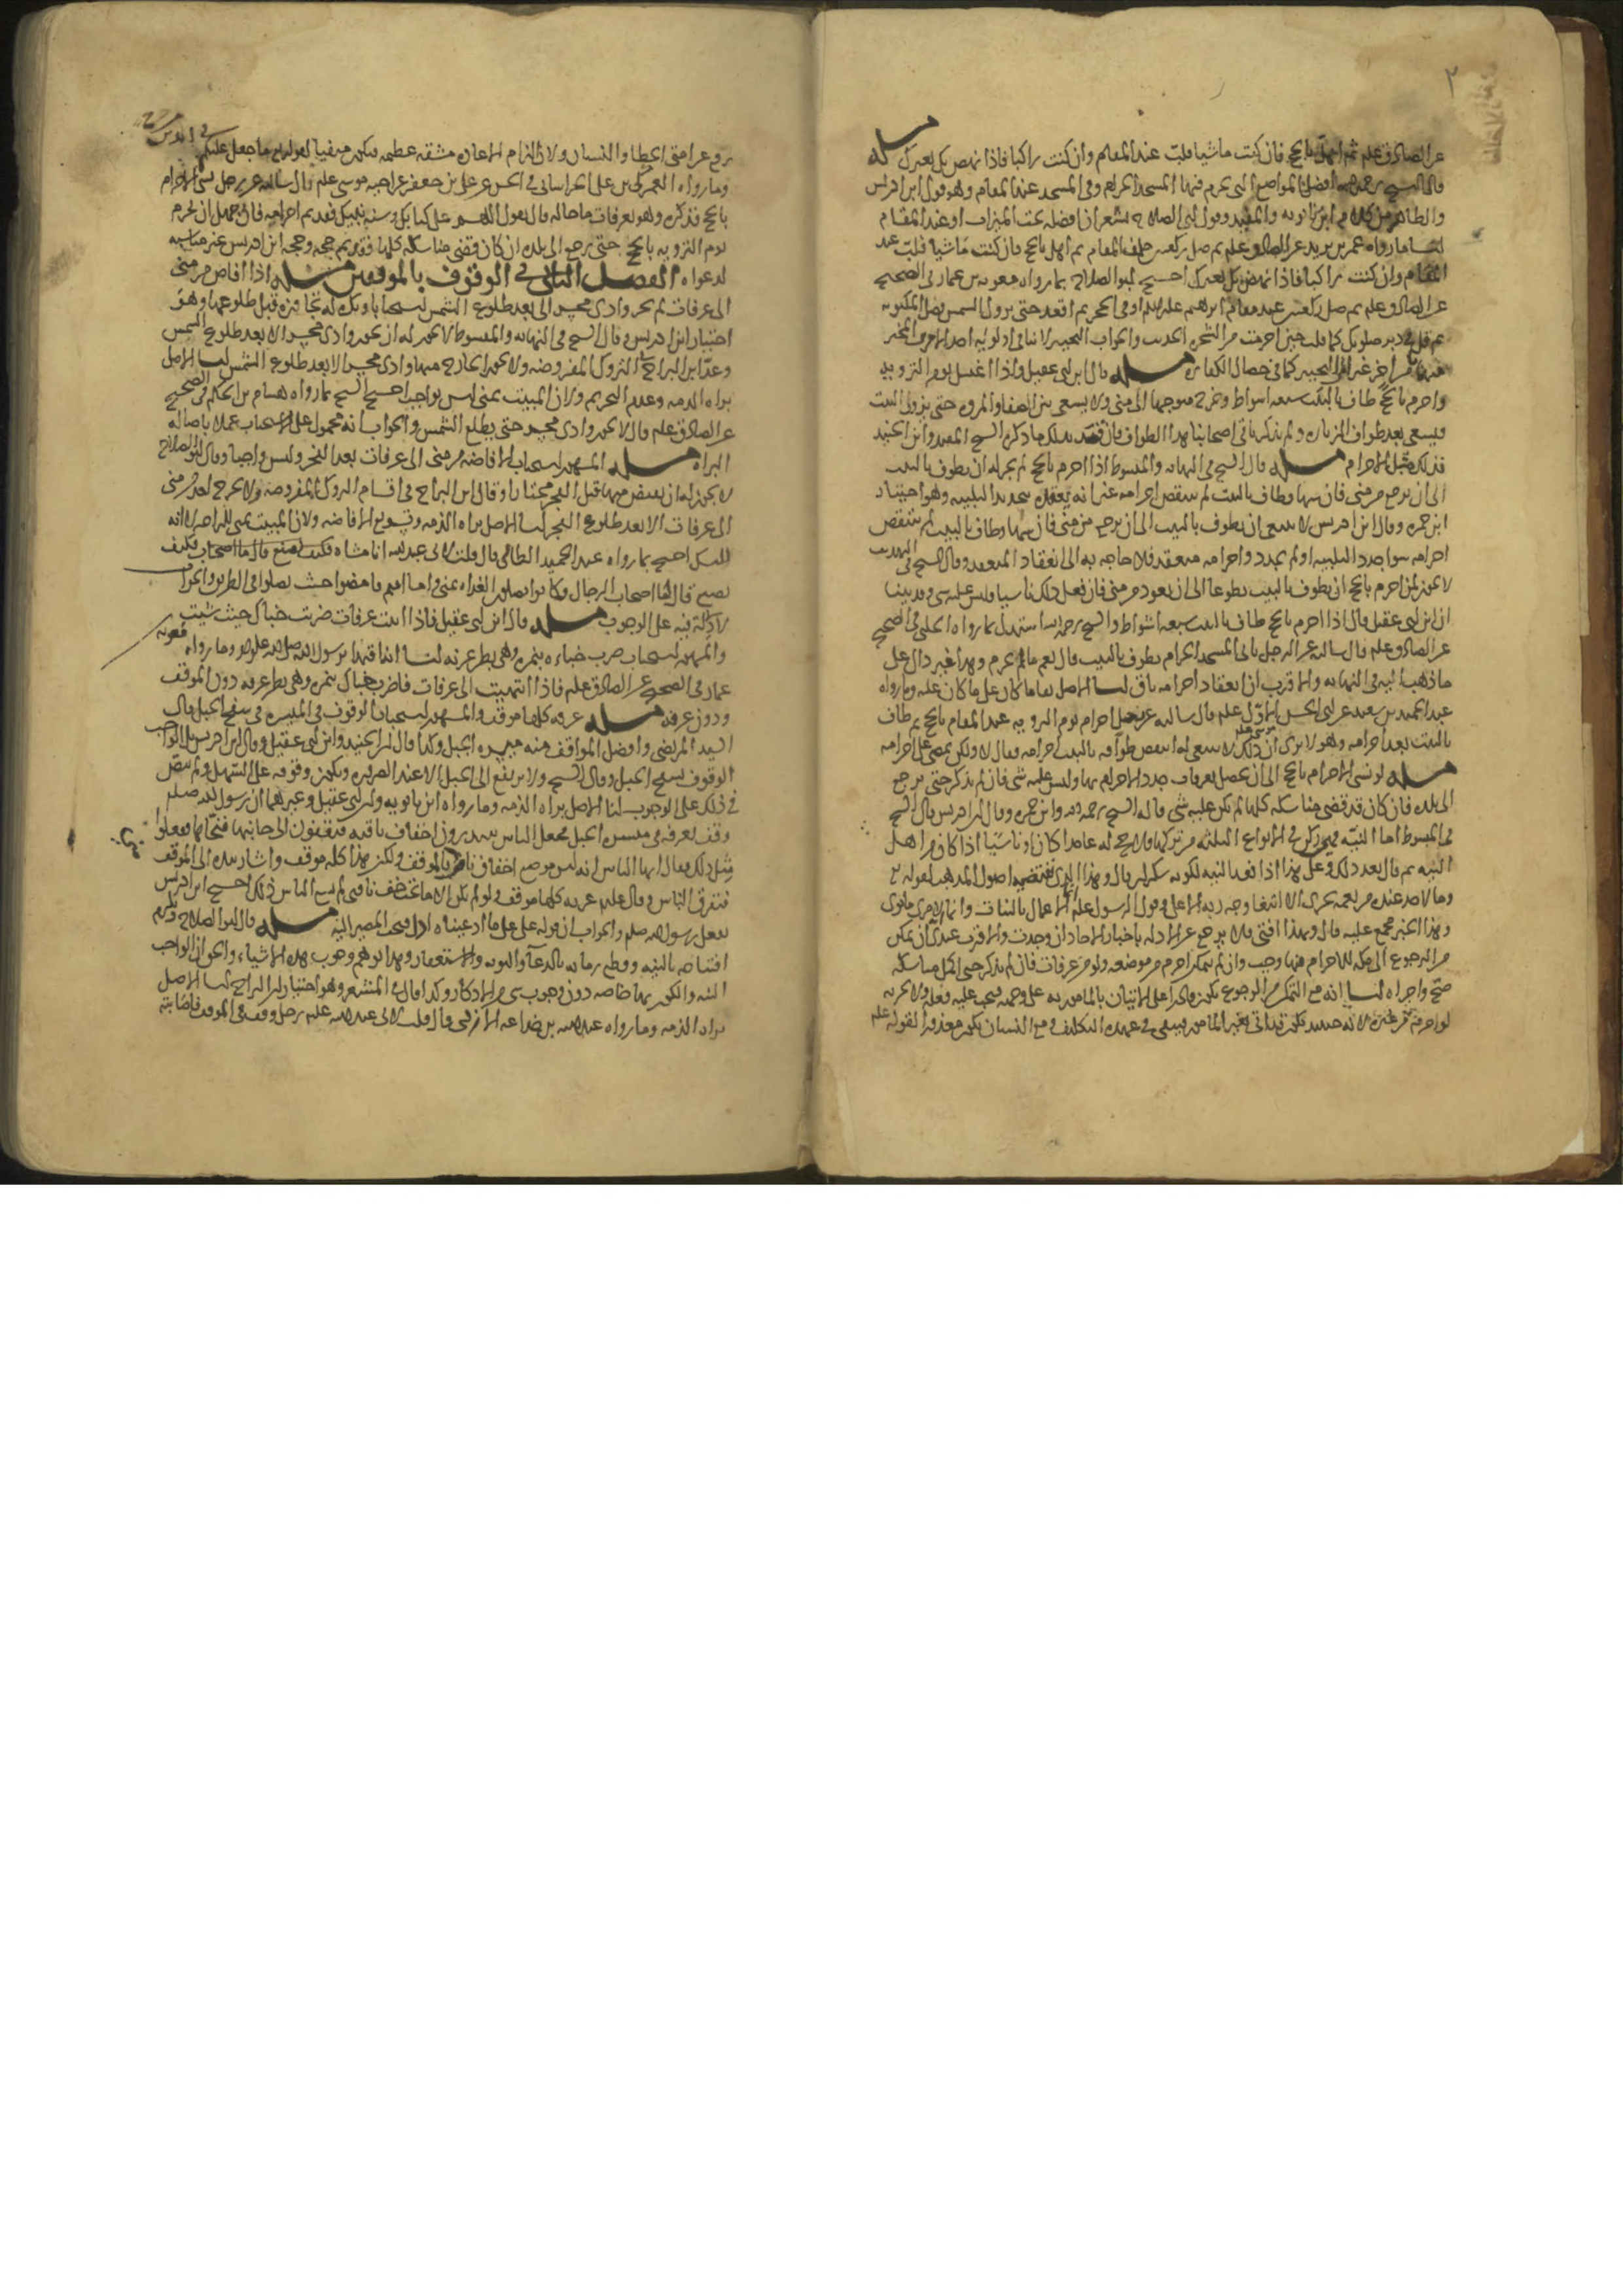 ٢
عن الصادق علم ثم اهل بالحج فان كنت ماشيا فلب عند المقام وان كنت راكبا فاذا نهض بك بعيرك مسله
قال الشيخ رحمه الله افضل المواضع التي يحرم فيها المسجد الحرام وفي المسجد عند المقام وهو قول ابن ادريس
والظاهر من كلام ابن بابويه والمفيد وقول ابي الصلاح يشعر ان افضله تحت الميزاب او عند المقام
لنا ما رواه عمر بن يزيد عن الصادق علم ثم صل ركعتين خلف المقام ثم اهل بالحج فان كنت ماشيا فلب عند
المقام وان كنت راكبا فاذا نهض بك بعيرك احتج ابو الصلاح بما رواه معويه بن عمار في الصحيح
عن الصادق علم ثم صل ركعتين عند مقام ابرهيم علم او في الحجر ثم اقعد حتى تزول الشمس فصل المكتوبه
ثم قل في دبر صلوتك كما قلت حين احرمت من الشجره الحديث والجواب التخيير لا ينافي اولويه احد الامرين المخير
فيها من اخر غير التخيير كما في خصال الكفاره مسله قال ابن ابي عقيل واذا اغتسل يوم الترويه
واحرم بالحج طاف بالبيت سبعه اشواط وخرج متوجها الى منى ولا يسعى بين الصفا والمروه حتى يزور البيت
فيسعى بعد طواف الزياره ولم يذكر باقي اصحابنا هذا الطواف فان قصد بذلك ما ذكره الشيخ المفيد وابن الجنيد
فذلك قبل الاحرام مسله قال الشيخ في النهايه والمبسوط اذا احرم بالحج لم يجز له ان يطوف بالبيت
الى ان يرجع من منى فان سها وطاف بالبيت لم ينتقض احرامه غير انه يعقده بتجديد التلبيه وهو اختيار
ابن حمزه وقال ابن ادريس لا ينبغي ان يطوف بالبيت الى ان يرجع من منى فان سها وطاف بالبيت لم ينتقض
احرامه سوا جدد التلبيه او لم يجدد واحرامه منعقد فلا حاجه به الى انعقاد المنعقد وقال الشيخ في التهذيب
لا يجوز لمن احرم بالحج ان يطوف بالبيت تطوعا الى ان يعود من منى فان فعل ذلك ناسيا فليس عليه شي وقد بينا
ان ابن ابي عقيل قال اذا احرم بالحج طاف بالبيت سبعه اشواط والشيخ رحمه الله استدل بما رواه الحلبي في الصحيح
عن الصادق علم قال سالته عن الرجل ياتي المسجد الحرام يطوف بالبيت قال نعم ما لم يحرم وهذا غير دال على
ما ذهب اليه في النهايه والاقرب ان انعقاد احرامه باق لنا الاصل بقا ما كان على ما كان عليه وما رواه
عبد الحميد بن سعيد عن ابي الحسن الاول علم قال سالته عن رجل احرم يوم الترويه عند المقام بالحج ثم طاف
بالبيت بعد احرامه وهو لا يرى ان ذلك لا ينبغي له اينقض طوافه بالبيت احرامه فقال لا ولكن يمضي على احرامه
مسله لو نسي الاحرام بالحج الى ان يحصل بعرفات جدد الاحرام بها وليس عليه شي فان لم يذكر حتى يرجع
الى بلده فان كان قد قضى مناسكه كلها لم يكن عليه شي قاله الشيخ رحمه الله وابن حمزه وقال ابن ادريس قال الشيخ
في المبسوط اما النيه فهي ركن في الانواع الثلثه من تركها فلا حج له عامدا كان او ناسيا اذا كان من اهل
النيه ثم قال بعد ذلك وعلى هذا اذا فقد النيه لكونه سكران قال وهذا الذي تقتضيه اصول المذهب لقوله تع
وما لاحد عنده من نعمه تجزى الا ابتغا وجه ربه الاعلى وقول الرسول علم الاعمال بالنيات وانما لامرئ ما نوى
وهذا الخبر مجمع عليه قال وبهذا افتي فلا يرجع عن الادله باخبار الاحاد ان وجدت والاقرب عندي ان تمكن
من الرجوع الى مكه للاحرام فيها وجب وان لم يتمكن احرم من موضعه ولو من عرفات فان لم يذكر حتى اكمل مناسكه
صح واجزاه لنا انه مع التمكن من الرجوع يكون قادرا على الاتيان بالمامور به على وجهه فيجب عليه فعله ولا يجزيه
لو احرم من غيره لانه حينئذ يكون قد اتى بغير المامور فيبقى في عهده التكليف ومع النسيان يكون معذورا لقوله علم
رفع عن امتي الخطا والنسيان ولان الزام الاعاده مشقه عظيمه فيكون منفيا لقوله تع ما جعل عليكم في الدين من حرج
وما رواه العمركي بن علي الخراساني في الحسن عن علي بن جعفر عن اخيه موسى علم قال سالته عن رجل نسي الاحرام
بالحج فذكره وهو بعرفات ما حاله قال يقول اللهم على كتابك وسنه نبيك فقد تم احرامه فان جهل ان يحرم
يوم الترويه بالحج حتى رجع الى بلده ان كان قضى مناسكه كلها فقد تم حجه وحجه ابن ادريس غير مناسبه
لدعواه الفصل الثاني في الوقوف بالموقفين مسله اذا افاض من منى
الى عرفات لم يجز وادي محسر الا بعد طلوع الشمس استحبابا ويكره له تجاوزه قبل طلوعها وهو
اختيار ابن ادريس وقال الشيخ في النهايه والمبسوط لا يجوز له ان يجوز وادي محسر الا بعد طلوع الشمس
وعد ابن البراج في التروك المفروضه ولا يجوز الخارج منها وادي محسر الا بعد طلوع الشمس لنا الاصل
براه الذمه وعدم التحريم ولان المبيت بمنى ليس بواجب احتج الشيخ بما رواه هشام بن الحكم في الصحيح
عن الصادق علم قال لا يجوز وادي محسر حتى يطلع الشمس والجواب انه محمول على الاستحباب عملا باصاله
البراه مسله المشهور استحباب الافاضه من منى الى عرفات بعد الفجر وليس واجبا وقال ابو الصلاح
لا يجوز له ان يفيض منها قبل الفجر مختارا وقال ابن البراج في اقسام التروك المفروضه ولا يخرج احد من منى
الى عرفات الا بعد طلوع الفجر لنا الاصل براه الذمه وتسويغ الافاضه ولان المبيت بمنى
احتج بما رواه عبد الحميد الطائي قال قلت لابي عبد الله انا مشاه فكيف نصنع قال اما اصحاب
نصنع قال اما اصحاب الرجال فكانوا يصلون الغداه بمنى واما انتم فامضوا حيث تصلوا في الطريق والجواب
لا دلاله فيه على الوجوب مسله قال ابن ابي عقيل فاذا اتيت عرفات ضربت خباك حيث شيت
والمشهور استحباب ضرب خباءه بنمره وهي بطن عرنه لنا اقتدا برسول الله صلى الله عليه وما رواه معويه
عمار في الصحيح عن الصادق علم فاذا انتهيت الى عرفات فاضرب خباك بنمره وهي بطن عرنه دون الموقف
ودون عرفه مسله عرفه كلها موقف والمشهور استحباب الوقوف في الميسره في سفح الجبل قال
السيد المرتضى وافضل المواقف منه ميسره الجبل وكذا قال ابن الجنيد وابن ابي عقيل وقال ابن ادريس الواجب
الوقوف بسفح الجبل وقال الشيخ ولا يرتفع الى الجبل الا عند الضروره ويكون وقوفه على السهل ولم ينص
في ذلك على الوجوب لنا الاصل براه الذمه وما رواه ابن بابويه وابن ابي عقيل وغيرهما ان رسول الله صلعم
وقف بعرفه في ميسره الجبل فجعل الناس يبتدرون اخفاف ناقته فيقفون الى جانبها فنحاها ففعلوا
مثل ذلك فقال ايها الناس انه ليس موضع اخفاف ناقتي بالموقف ولكن هذا كله موقف واشار بيده الى الموقف
فتفرق الناس وقال علم عرفه كلها موقف ولو لم يكن الا ما تحت خف ناقتي لم يسع الناس ذلك احتج ابن ادريس
بفعل رسول الله صلعم والجواب ان قوله على ما ادعيناه ادل فيجب المصير اليه مسله قال ابو الصلاح يلزم
افتتاحه بالنيه وقطع زمانه بالدعا والتوبه والاستغفار وهذا يوهم وجوب هذه الاشياء والحق ان الواجب
النيه والكون بها خاصه دون وجوب شي من الاذكار وكذا قال في المشعر وهو اختيار ابن البراج لنا الاصل
براه الذمه وما رواه عبد الله بن جذاعه الازدي قال قلت لابي عبد الله علم رجل وقف في الموقف فاصابته